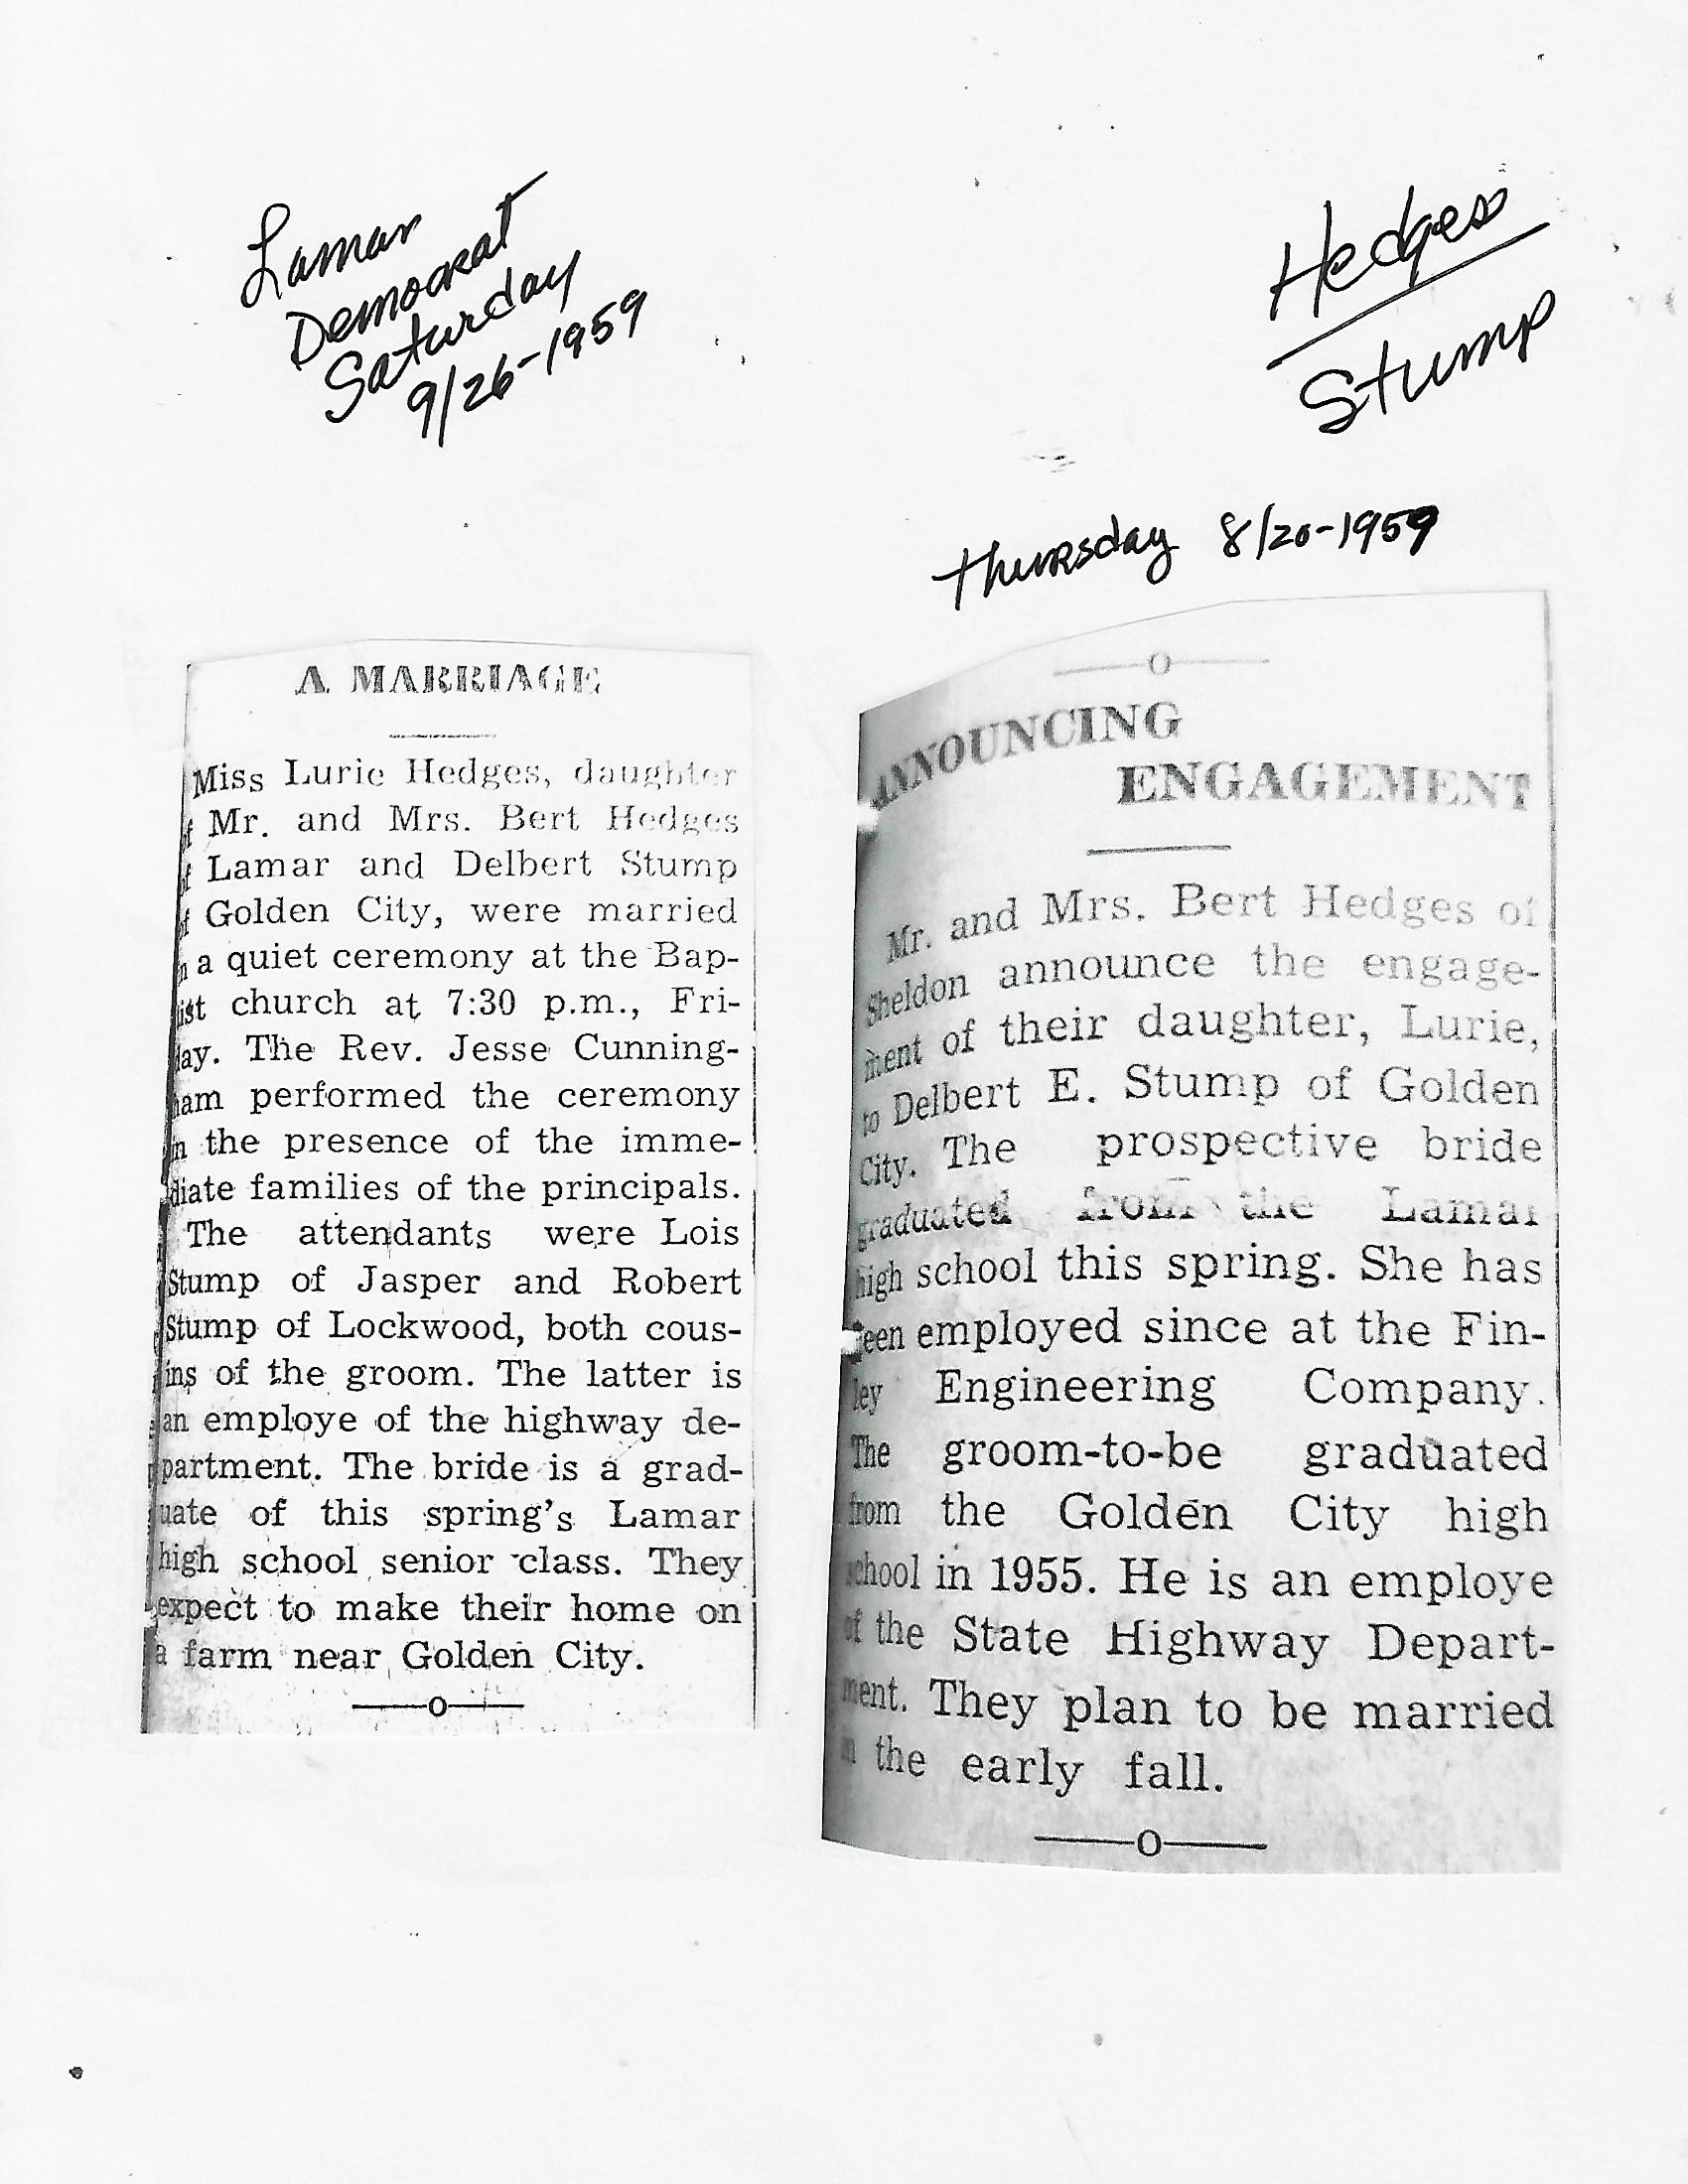 Lamar
Democrat
Saturday
9/26-1959
Hedges
Stump
Thursday 8/20-1959
A MARRIAGE
Miss Lurie Hedges, daughter
of Mr. and Mrs. Bert Hedges
of Lamar and Delbert Stump
of Golden City, were married
n a quiet ceremony at the Bap-
tist church at 7:30 p.m., Fri-
day. The Rev. Jesse Cunning-
ham performed the ceremony
in the presence of the imme-
diate families of the principals.
The attendants were Lois
Stump of Jasper and Robert
Stump of Lockwood, both cous-
ins of the groom. The latter is
an employe of the highway de-
partment. The bride is a grad-
uate of this spring's Lamar
high school senior class. They
expect to make their home on
a farm near Golden City.
O
O
ANNOUNCING
ENGAGEMENT
Mr. and Mrs. Bert Hedges of
Sheldon announce the engage-
ment of their daughter, Lurie,
to Delbert E. Stump of Golden
City. The prospective bride
graduated from the Lamar
high school this spring. She has
been employed since at the Fin-
ley Engineering Company.
The groom-to-be graduated
from the Golden City high
school in 1955. He is an employe
of the State Highway Depart-
ment. They plan to be married
in the early fall.
O